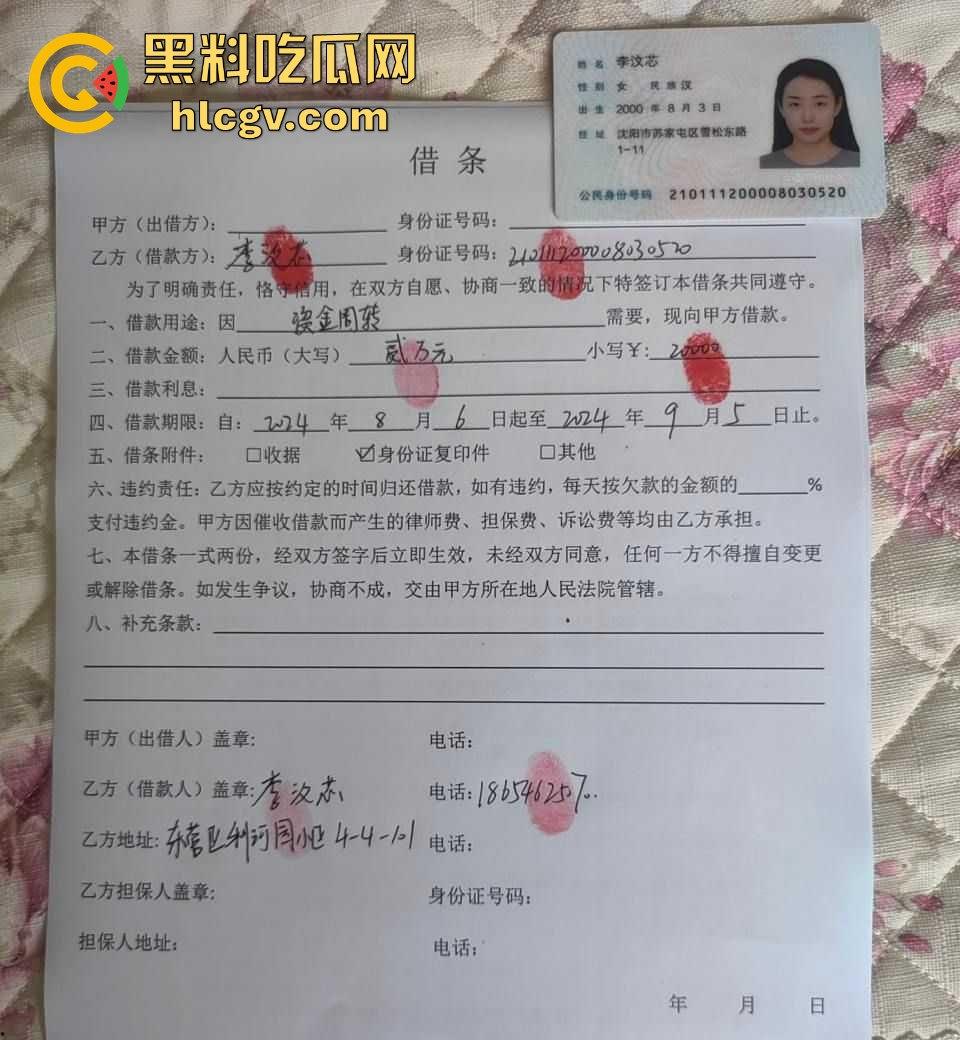 黑料吃瓜网
hlcgv.com
姓名 [omitted]
性别 女 民族 汉
出生 [omitted]
住址 [omitted]
公民身份号码 [omitted]
借条
甲方（出借方）： 身份证号码：
乙方（借款方）：[omitted] 身份证号码：[omitted]
为了明确责任，恪守信用，在双方自愿、协商一致的情况下特签订本借条共同遵守。
一、借款用途：因 资金周转 需要，现向甲方借款。
二、借款金额：人民币（大写） 贰万元 小写￥: 20000
三、借款利息：
四、借款期限：自：2024年8月6日起至2024年9月5日止。
五、借条附件： ☐收据 ☑身份证复印件 ☐其他
六、违约责任：乙方应按约定的时间归还借款，如有违约，每天按欠款的金额的______%
支付违约金。甲方因催收借款而产生的律师费、担保费、诉讼费等均由乙方承担。
七、本借条一式两份，经双方签字后立即生效，未经双方同意，任何一方不得擅自变更
或解除借条。如发生争议，协商不成，交由甲方所在地人民法院管辖。
八、补充条款：
甲方（出借人）盖章: 电话：
乙方（借款人）盖章:[omitted] 电话：[omitted]
乙方地址:[omitted] 电话：
乙方担保人盖章: 身份证号码：
担保人地址: 电话：
年 月 日